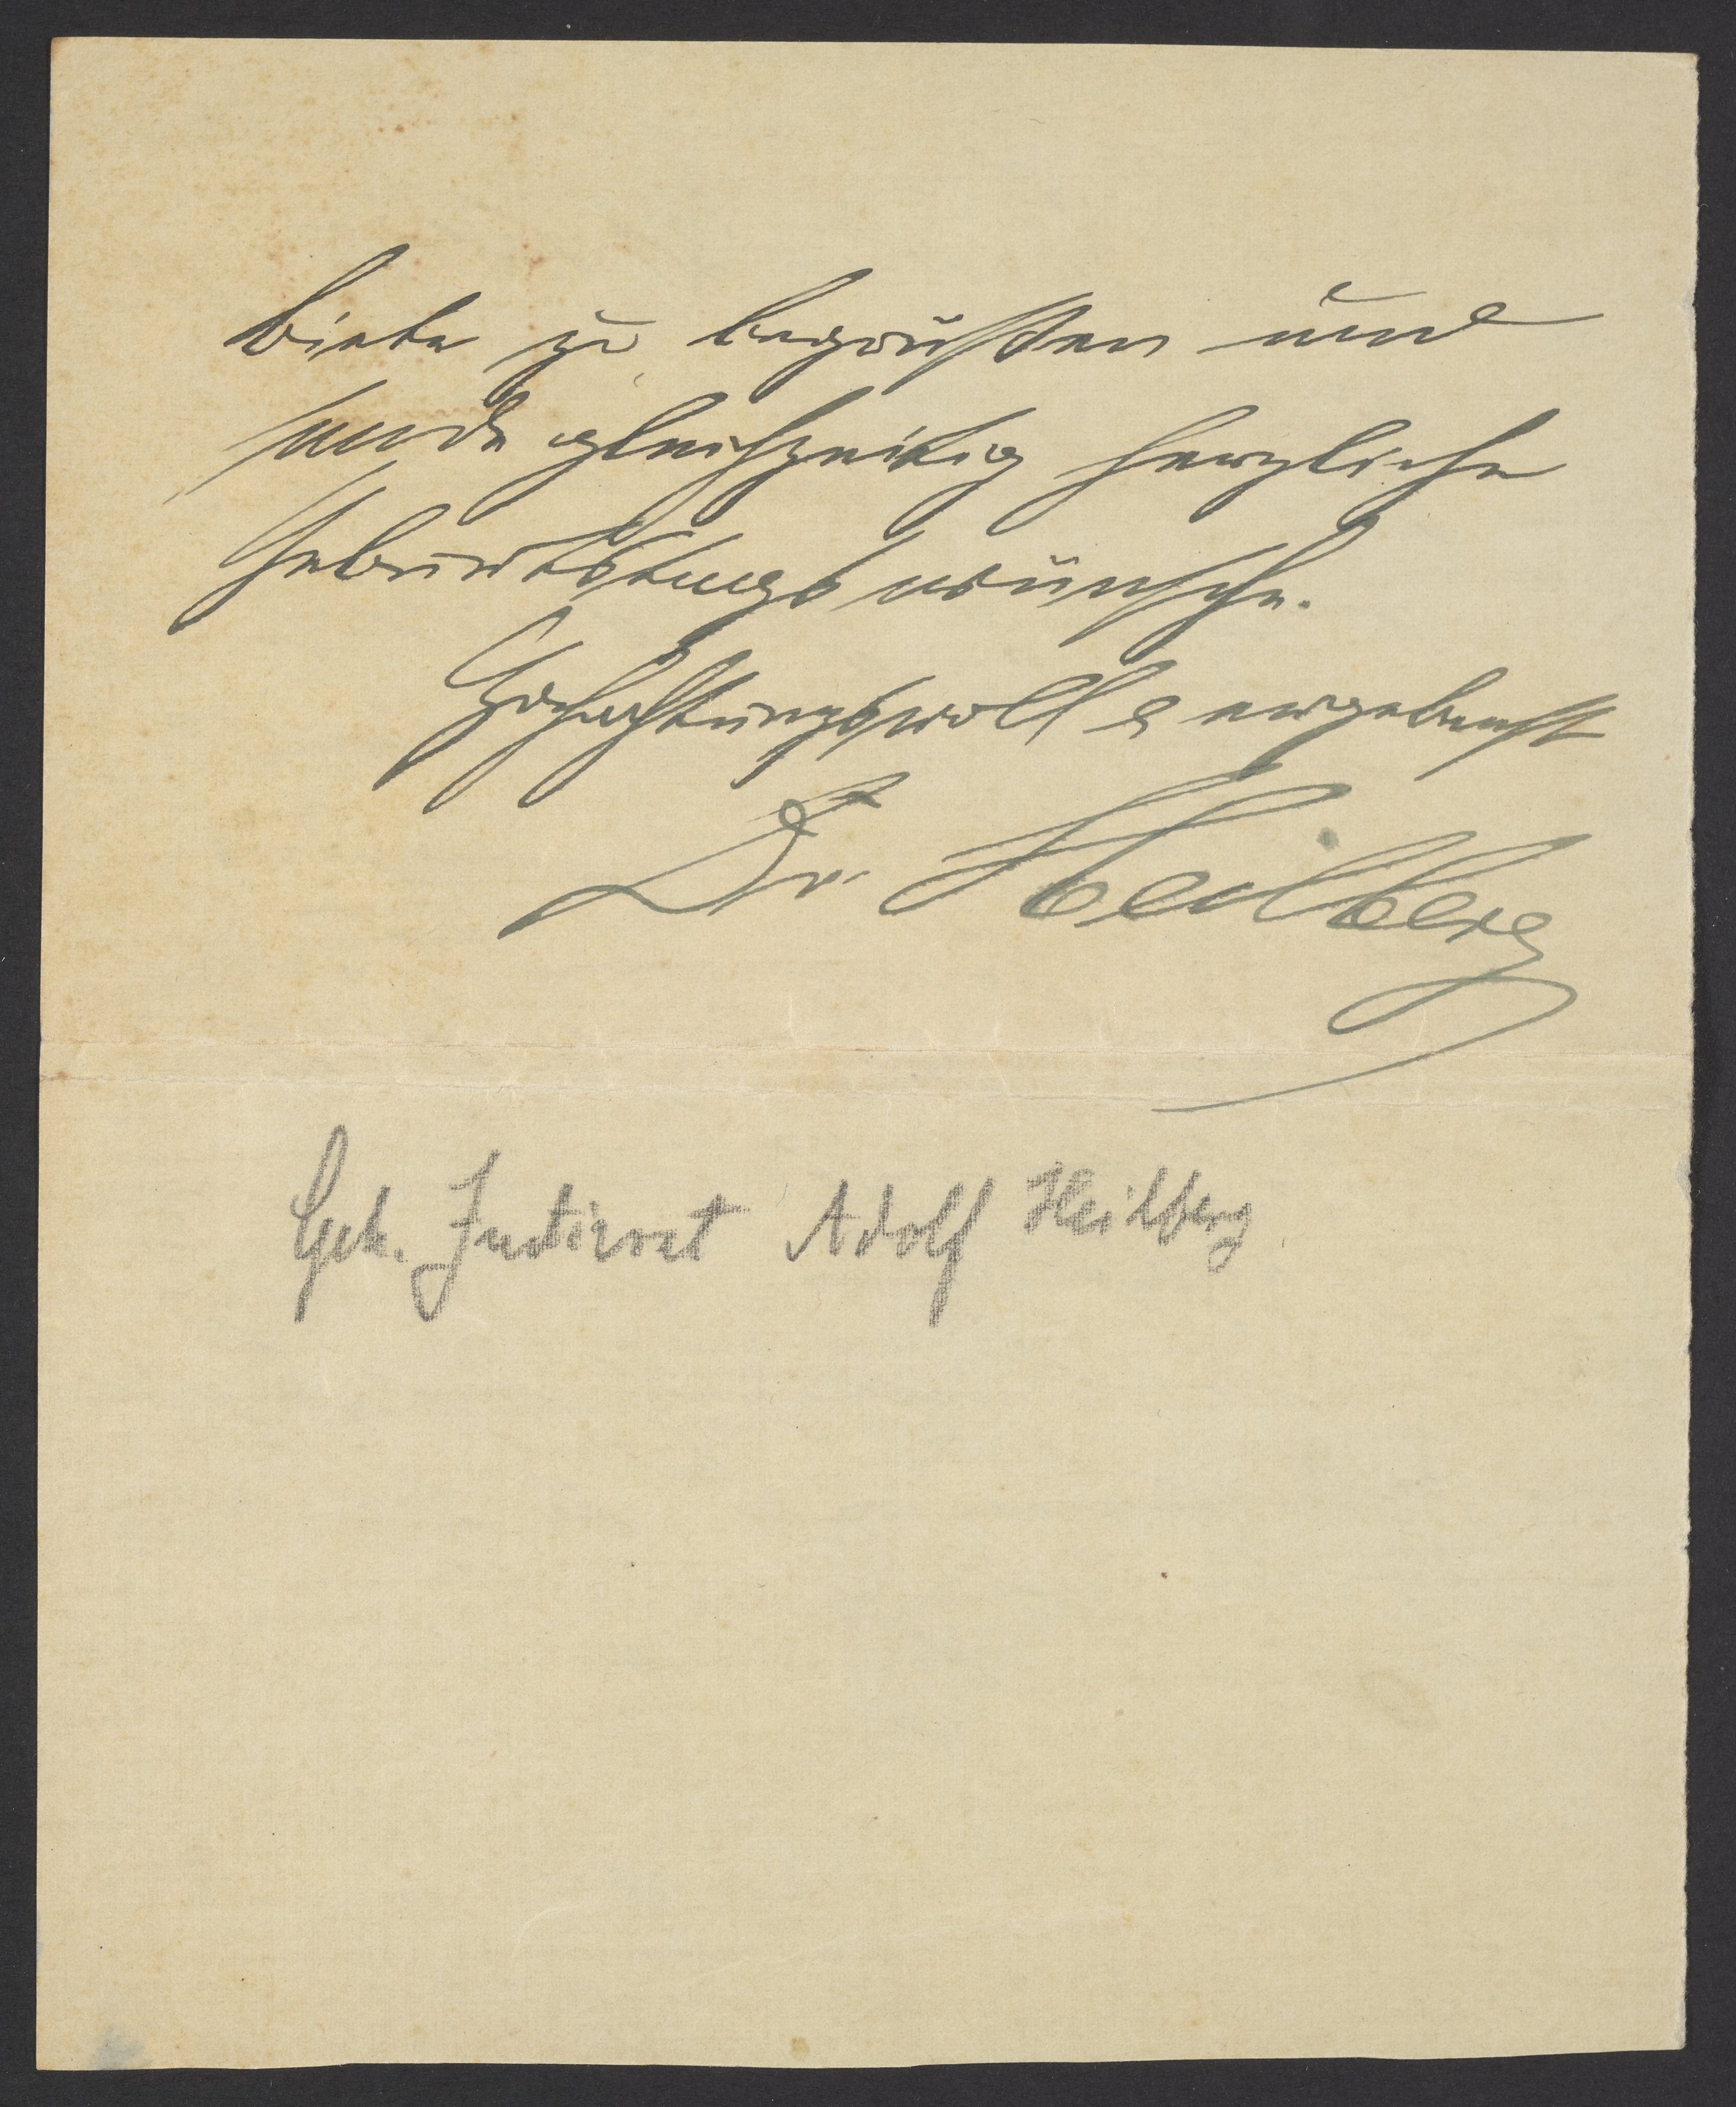 zu begrüßen und
sende gleichzeitig herzliche
Geburtstagswünsche.
Hochachtungsvoll & ergebenst
Dr. Heilberg
Geh. Justizrat Adolf Heilberg